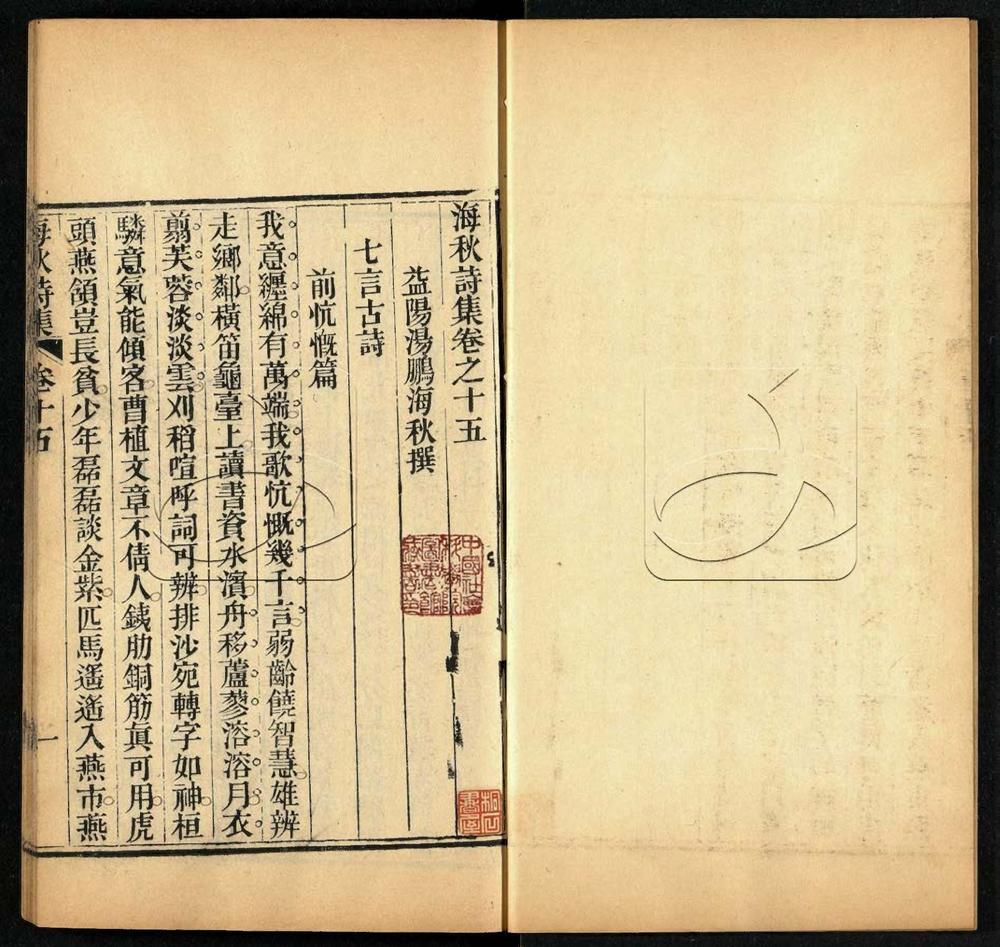 海秋詩集卷之十五
益陽湯鵬海秋撰
七言古詩
前忼慨篇
我意纏綿有萬端我歌忼慨幾千言弱齡饒智慧雄辨
走鄉鄰橫笛龜臺上讀書資水濱舟移蘆蓼溶溶月衣
翦芙蓉淡淡雲刈稻喧呼詞可辨排沙宛轉字如神桓
驎意氣能傾客曹植文章不倩人銕肋銅筋眞可用虎
頭燕頷豈長貧少年磊磊談金紫匹馬遙遙入燕市燕
海秋詩集
卷十五
一